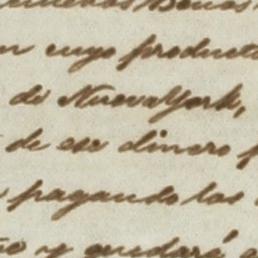 cuyo product
de Nueva York,
de ese dinero p
pagando los
y quedará